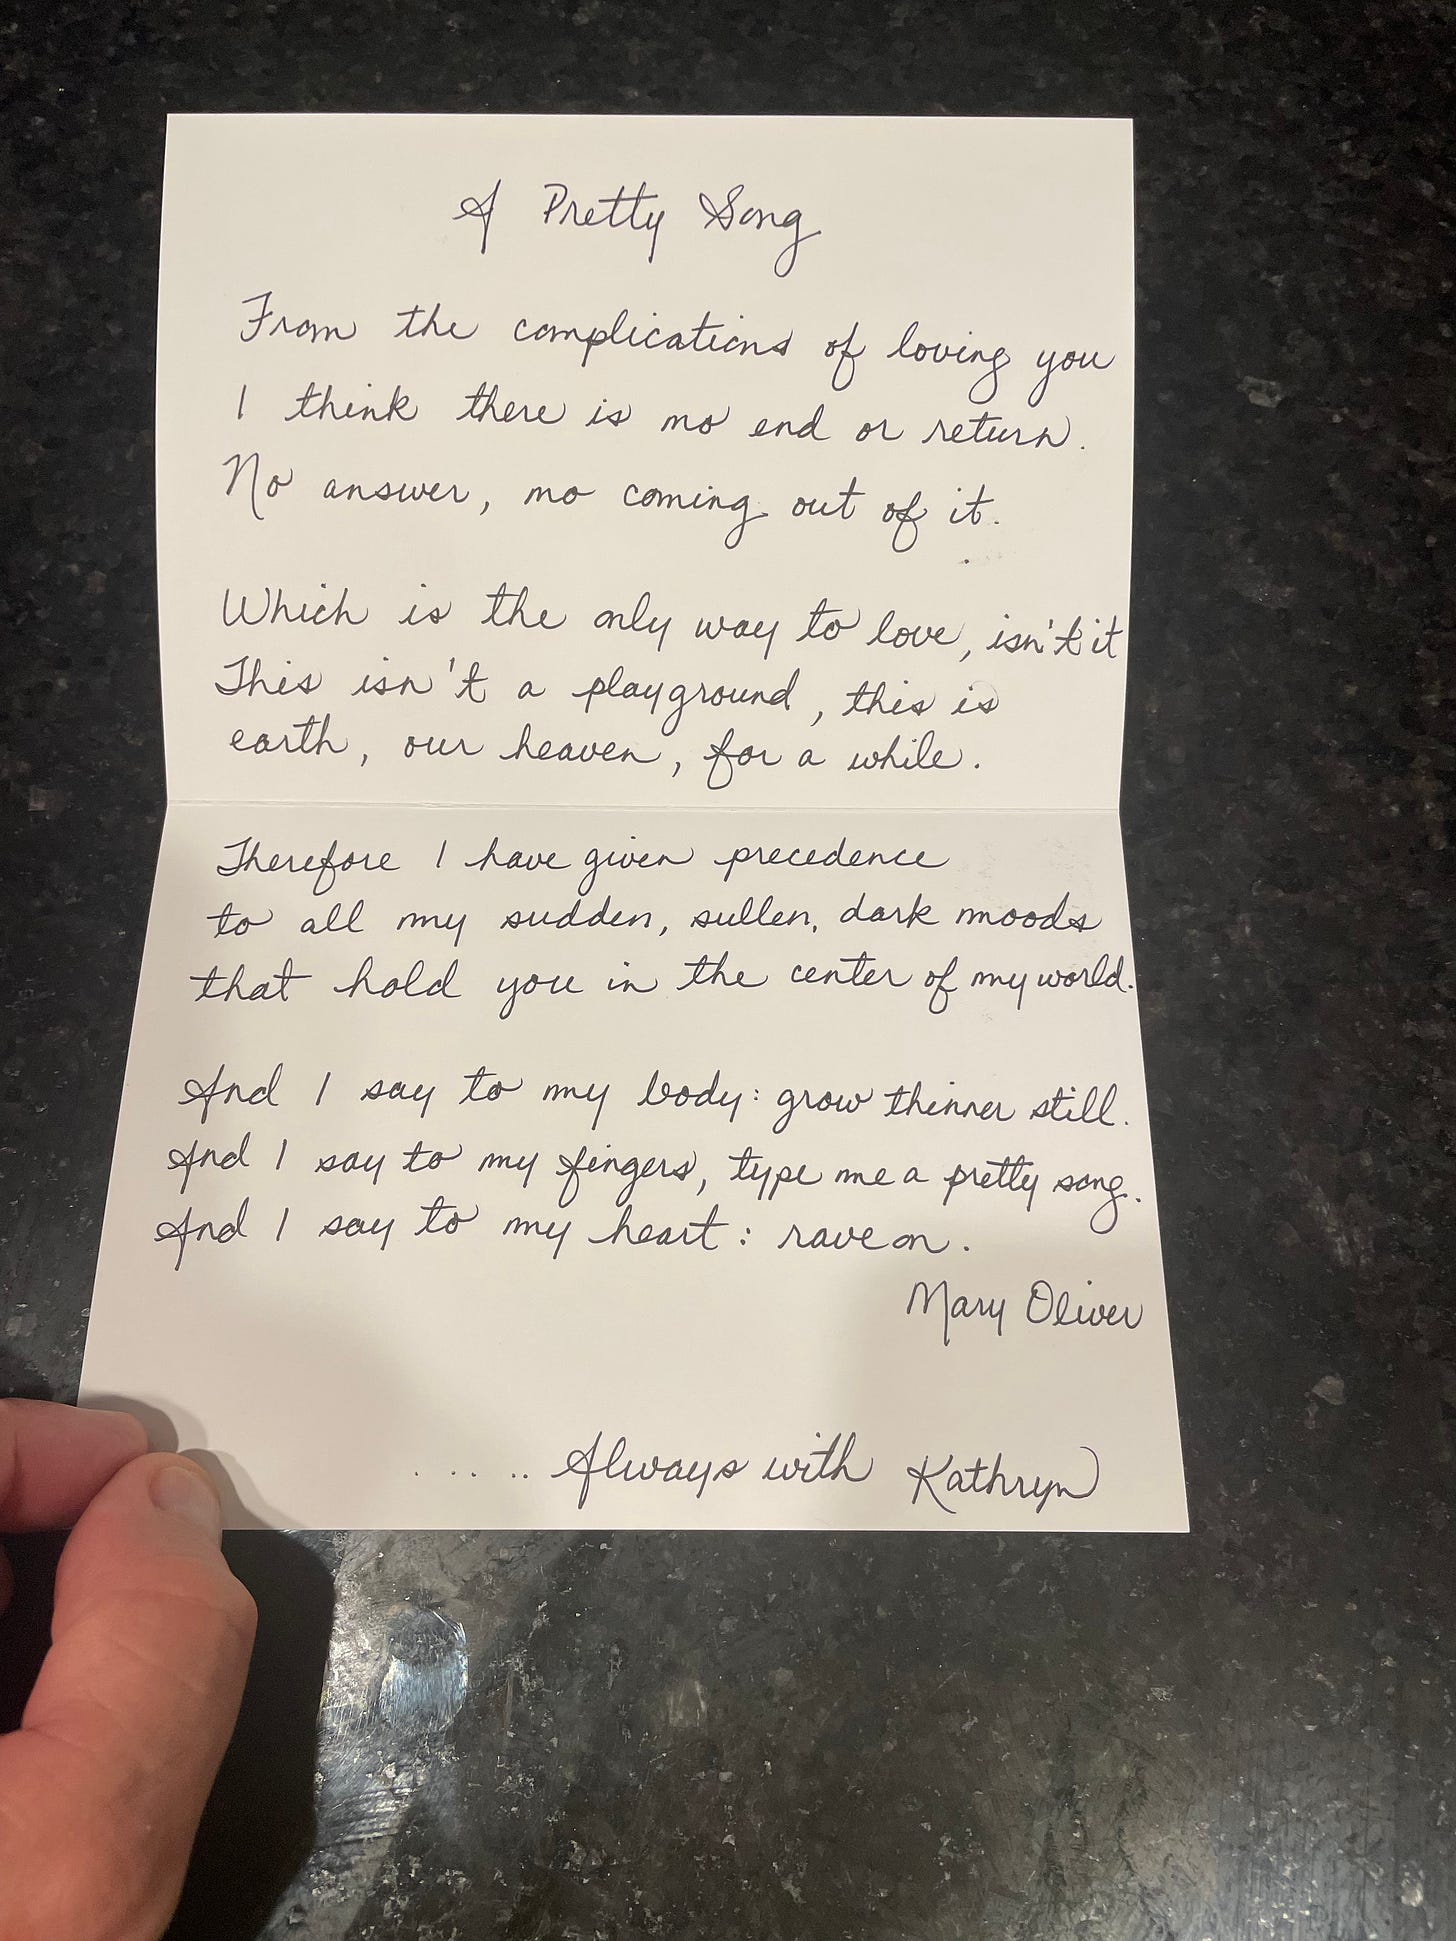 A Pretty Song
From the complications of loving you
I think there is no end or return.
No answer, no coming out of it.
Which is the only way to love, isn't it
This isn't a playground, this is
earth, our heaven, for a while.
Therefore I have given precedence
to all my sudden, sullen, dark moods
that hold you in the center of my world.
And I say to my body: grow thinner still.
And I say to my fingers, type me a pretty song.
And I say to my heart: rave on.
Mary Oliver
..... Always with Kathryn